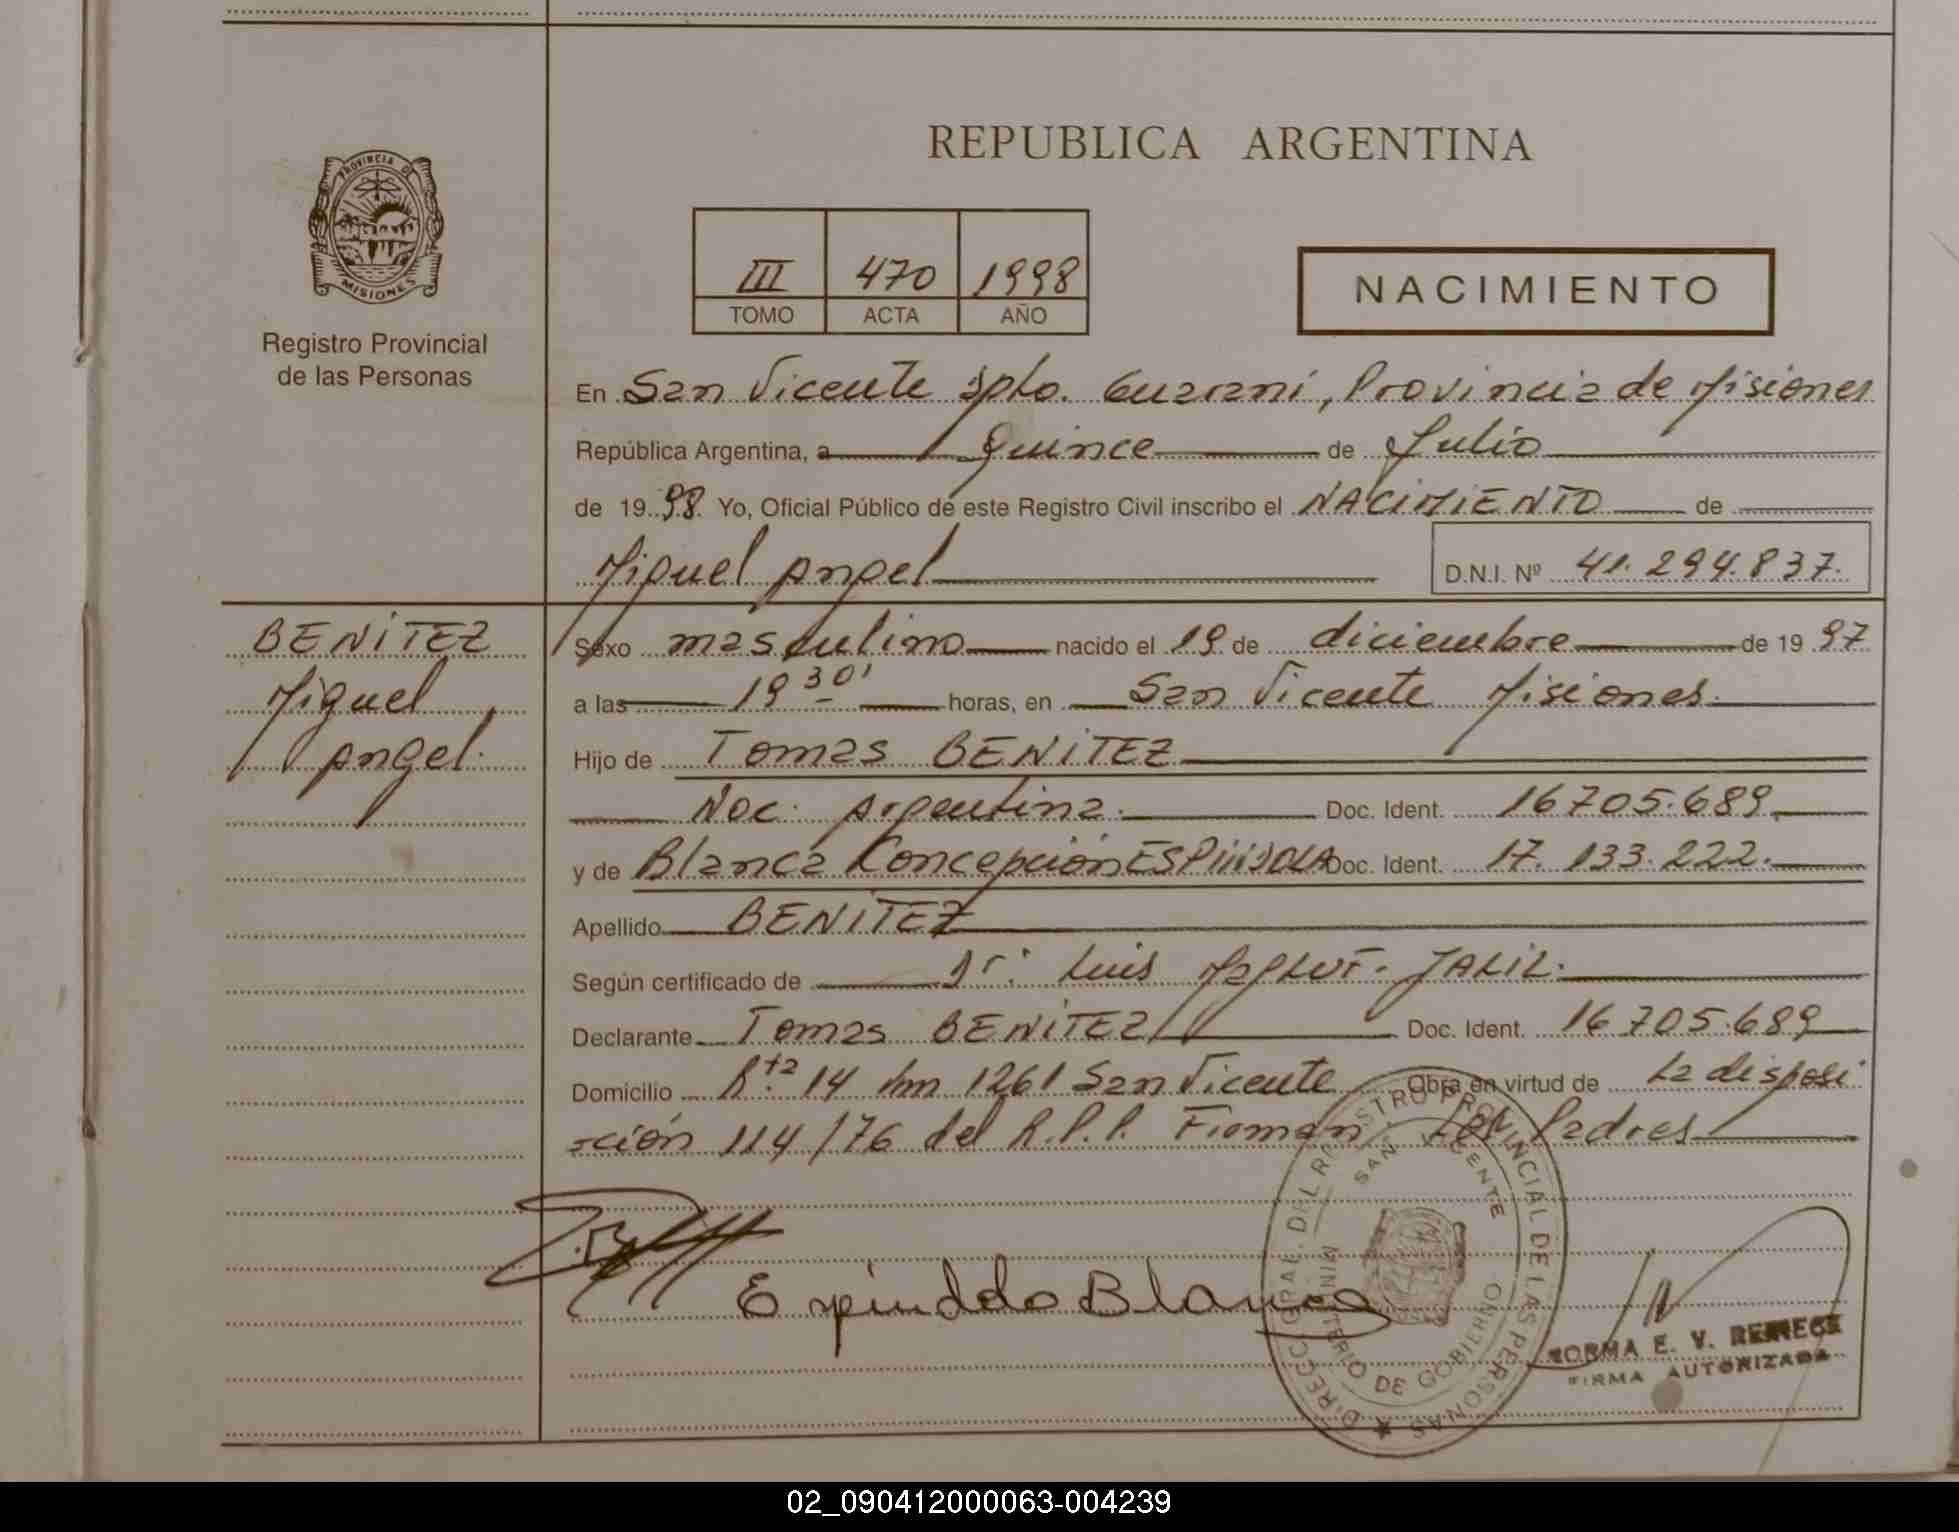 REPUBLICA ARGENTINA
PROVINCIA DE
MISIONES
Registro Provincial
de las Personas
III 470 1998
TOMO ACTA AÑO
NACIMIENTO
En San Vicente Dpto. Guarani, Provincia de Misiones
República Argentina, a Quince de Julio
de 1998 Yo, Oficial Público de este Registro Civil inscribo el NACIMIENTO de
Miguel Angel D.N.I. Nº 41.294.837.
BENITEZ
Miguel
Angel.
Sexo masculino nacido el 19 de diciembre de 1997
a las 19 30' horas, en San Vicente Misiones.
Hijo de Tomas BENITEZ
Nac. Argentina. Doc. Ident. 16705.689
y de Blanca Concepción ESPINDOLA Doc. Ident. 17.133.222.
Apellido BENITEZ
Según certificado de Dr. Luis JALIL.
Declarante Tomas BENITEZ Doc. Ident. 16705.689
Domicilio Rta. 14 km 1261 San Vicente Obra en virtud de La disposi
ción 114/76 del R.P.P. Firman Los Padres
Espindola Blanca
DIRECC. GRAL. DEL REGISTRO PROVINCIAL DE LAS PERSONAS
SAN VICENTE
MINISTERIO DE GOBIERNO
NORMA E. V.
FIRMA AUTORIZADA
02_090412000063-004239